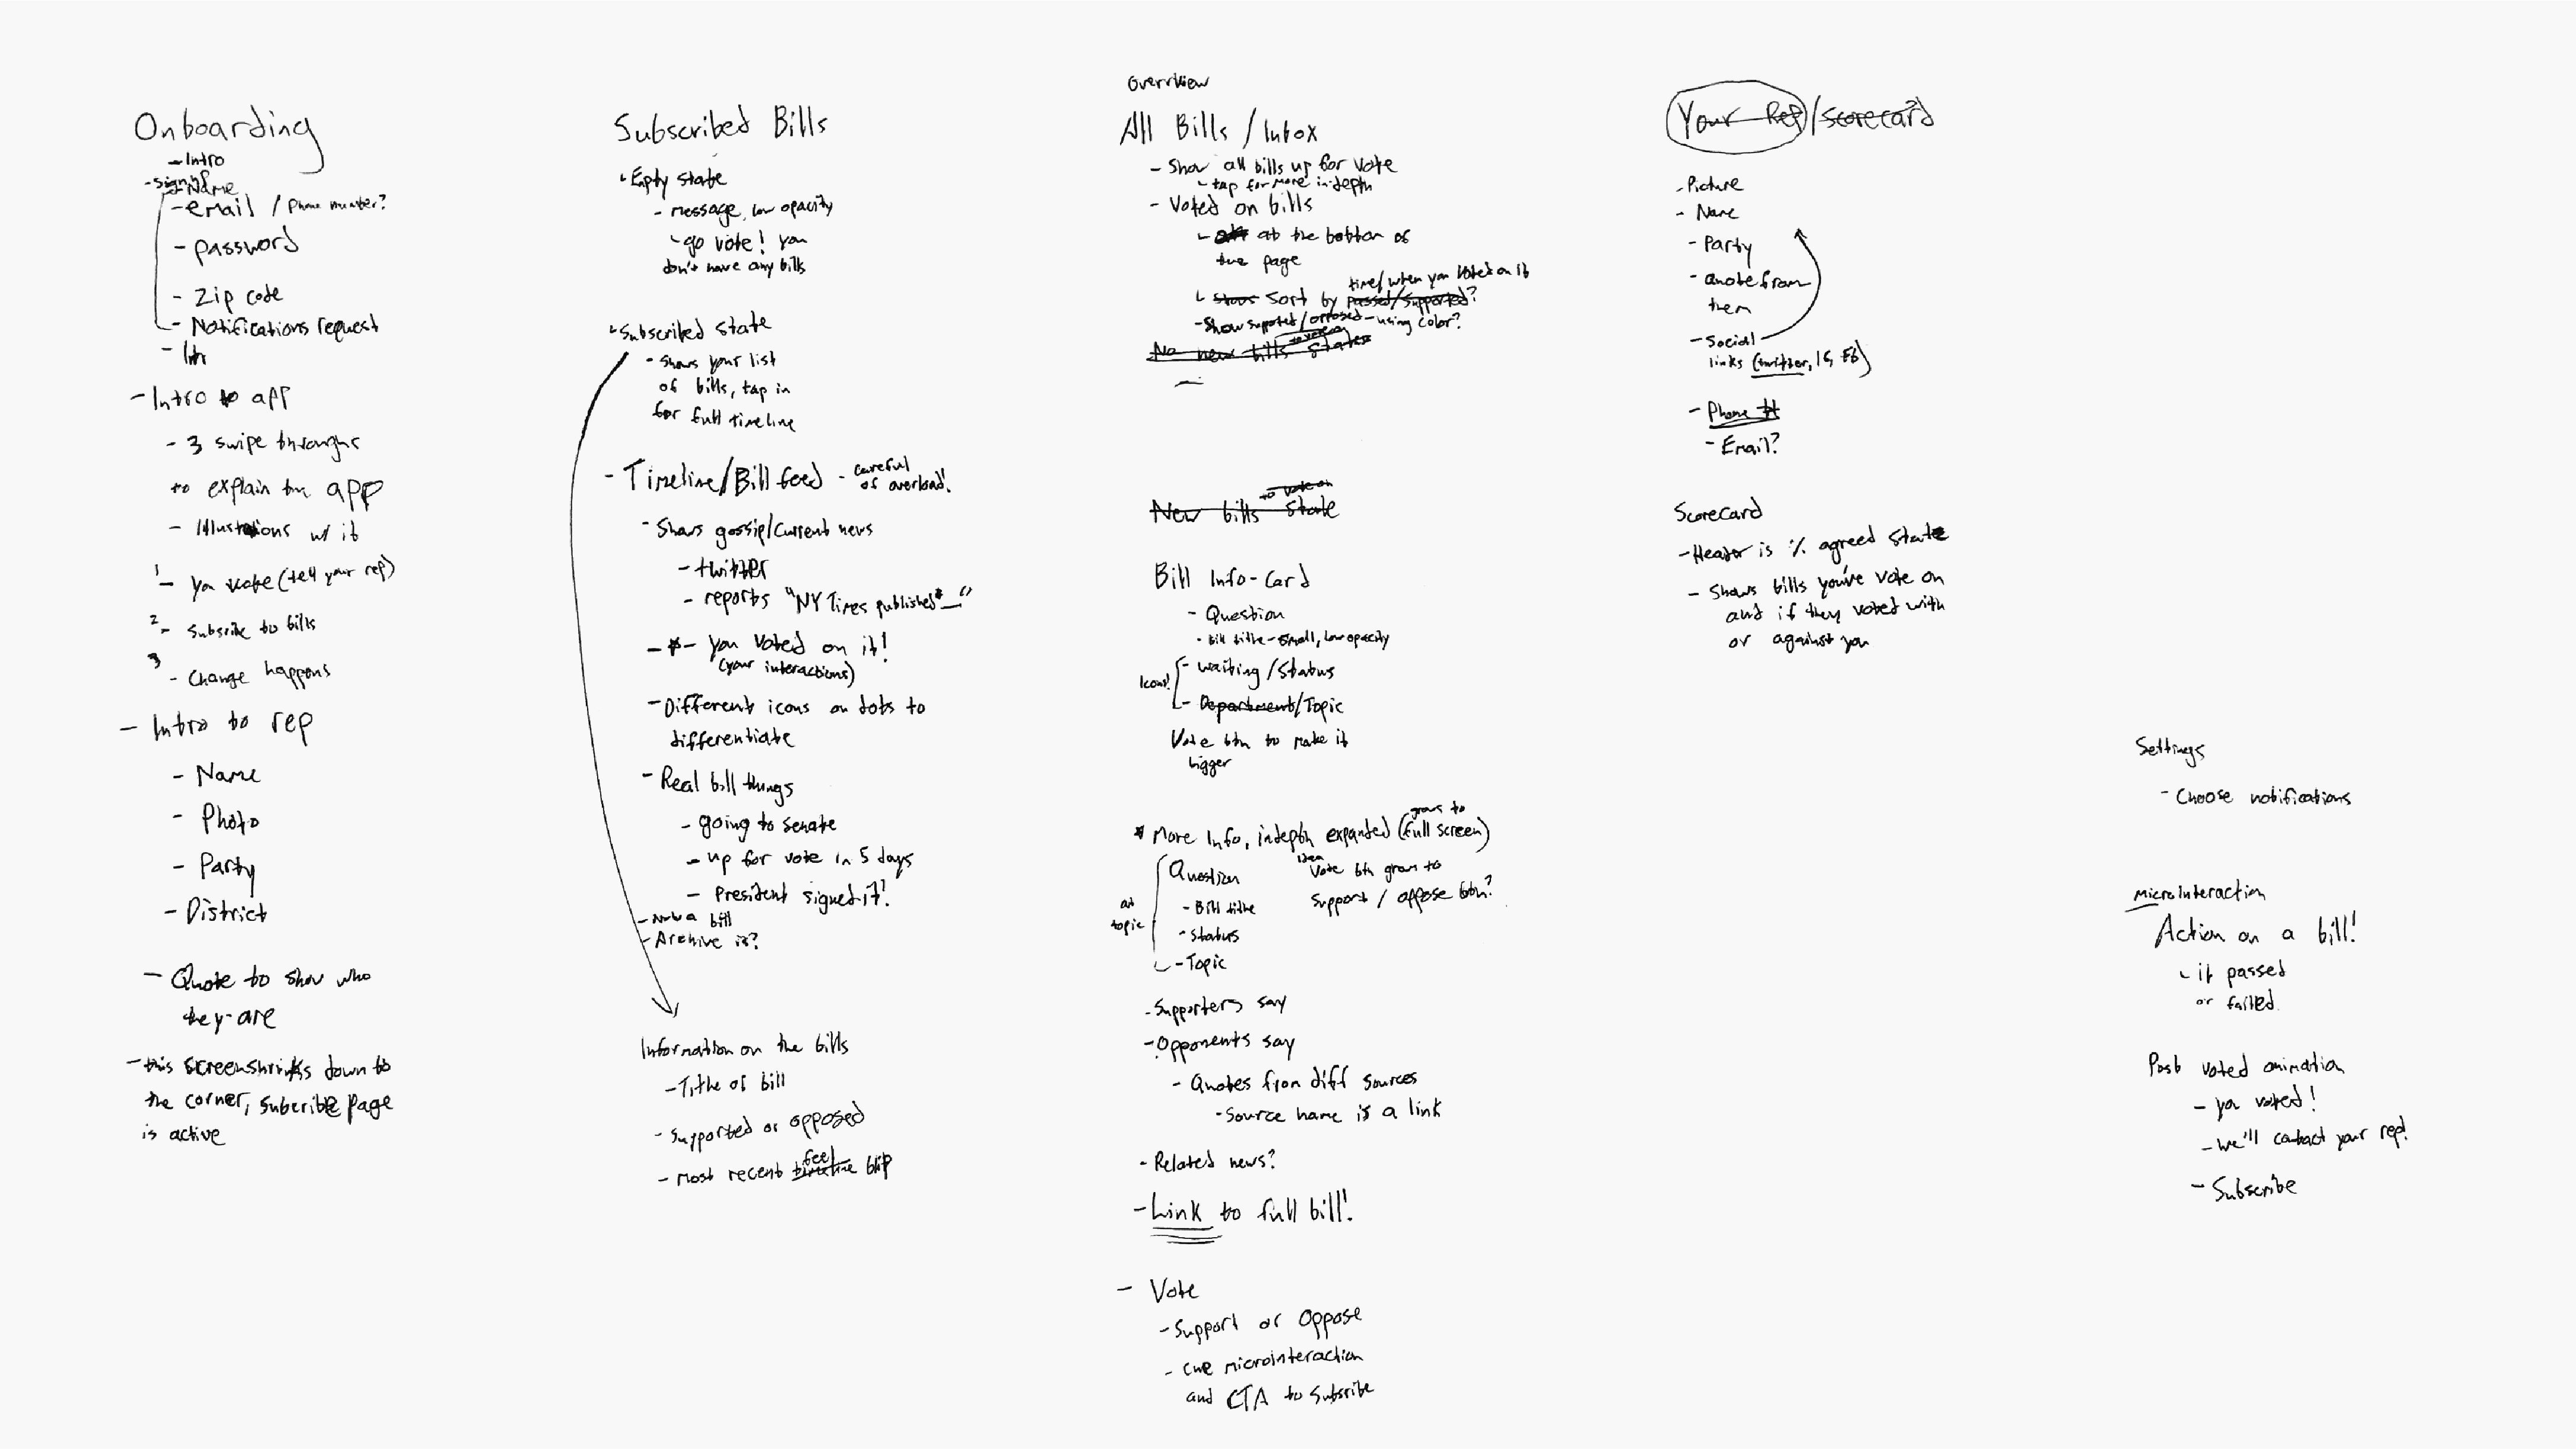 Onboarding
- Intro
- Sign up
- Name
- email / Phone number?
- password
- Zip code
- Notifications request
- Intro to app
- 3 swipe throughs
to explain the app
- Illustrations w/ it
1 - you vote (tell your rep)
2 - Subsribe to bills
3 - Change happens
- Intro to rep
- Name
- Photo
- Party
- District
- Quote to show who
they are
- this screen shrinks down to
the corner, subcribe page
is active
Subscribed Bills
Empty state
- message, low opacity
go vote! you
don't have any bills
Subscribed state
- shows your list
of bills, tap in
for full timeline
- Timeline/Bill feed - careful
of overload!
- Shows gossip/current news
- twitter
- reports "NY Times published* _"
- * - you voted on it!
(your interactions)
- Different icons on dots to
differentiate
- Real bill things
- going to senate
- up for vote in 5 days
- President signed it!
- a bill
- Archive it?
Information on the bills
- Title of bill
- Supported or opposed
- most recent timeline feed blip
Overview
All Bills / Inbox
- Show all bills up for vote
- tap for more in-depth
- Voted on bills
at the bottom of
the page
time/when you voted on it
shows sort by passed/supported?
- Show supported/opposed - using color?
to vote on
No new bills state
to vote on
New bills state
Bill Info-Card
- Question
- bill title - small, low opacity
Icons!
- waiting / Status
- Department/Topic
Vote btn to make it
bigger
* More Info, indepth expanded (grows to full screen)
at
topic
Question
- Bill title
- Status
- Topic
idea
Vote btn grows to
support / oppose btn?
- Supporters say
- Opponents say
- Quotes from diff sources
- Source name is a link
- Related news?
- Link to full bill!
- Vote
- Support or Oppose
- cue microinteraction
and CTA to subsribe
Your Rep/Scorecard
- Picture
- Name
- Party
- Quote from
them
- Social
links (twitter, IG, FB)
- Phone #
- Email?
Scorecard
- Header is % agreed state
- Shows bills you've vote on
and if they voted with
or against you
Settings
- Choose notifications
MicroInteraction
Action on a bill!
- it passed
or failed
Post voted animation
- you voted!
- we'll contact your rep!
- Subscribe